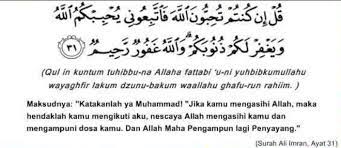 قُلْ إِن كُنتُمْ تُحِبُّونَ ٱللَّهَ فَٱتَّبِعُونِى يُحْبِبْكُمُ ٱللَّهُ
وَيَغْفِرْ لَكُمْ ذُنُوبَكُمْ وَٱللَّهُ غَفُورٌ رَّحِيمٌ ٣١
(Qul in kuntum tuhibbu-na Allaha fattabi 'u-ni yuhbibkumullahu
wayaghfir lakum dzunu-bakum waallahu ghafu-run rahiim. )
Maksudnya: "Katakanlah ya Muhammad! "Jika kamu mengasihi Allah, maka
hendaklah kamu mengikuti aku, nescaya Allah mengasihi kamu dan
mengampuni dosa kamu. Dan Allah Maha Pengampun lagi Penyayang."
(Surah Ali Imran, Ayat 31)